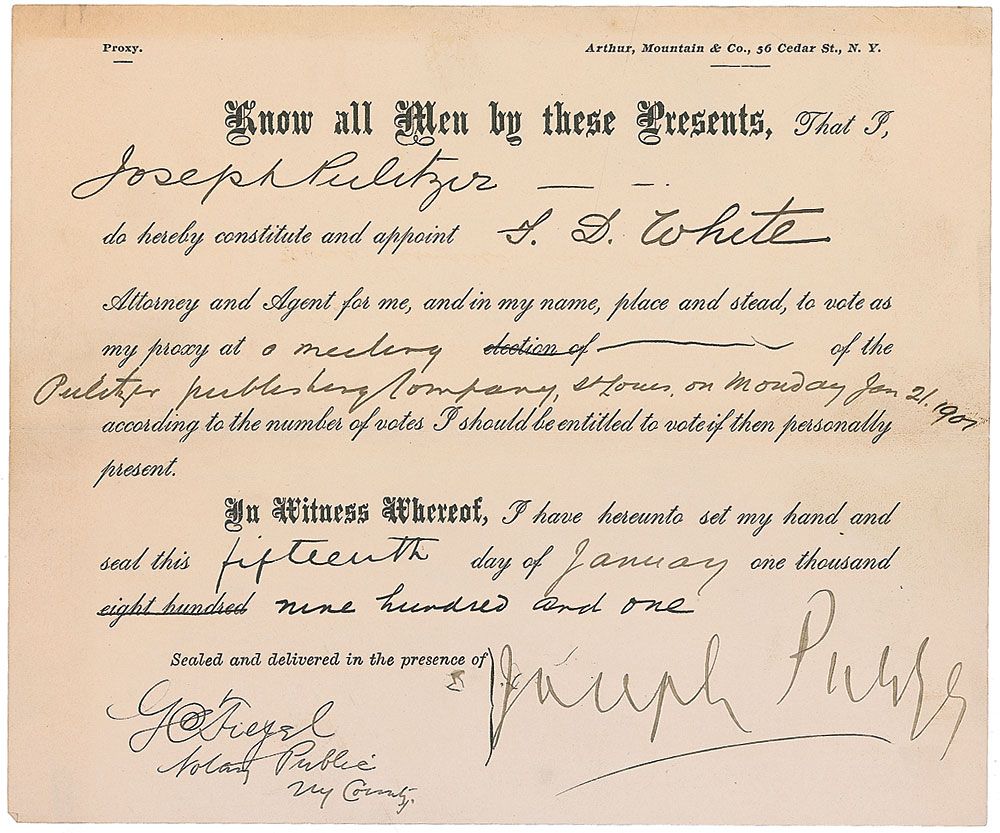 Proxy.
Arthur, Mountain & Co., 56 Cedar St., N. Y.
Know all Men by these Presents, That I,
Joseph Pulitzer — —
do hereby constitute and appoint F. D. White
Attorney and Agent for me, and in my name, place and stead, to vote as
my proxy at a meeting election of of the
Pulitzer Publishing Company, St Louis, on Monday Jan 21. 1901
according to the number of votes I should be entitled to vote if then personally
present.
In Witness Whereof, I have hereunto set my hand and
seal this fifteenth day of January one thousand
eight hundred nine hundred and one
Sealed and delivered in the presence of
Joseph Pulitzer
Notary Public
NY County.